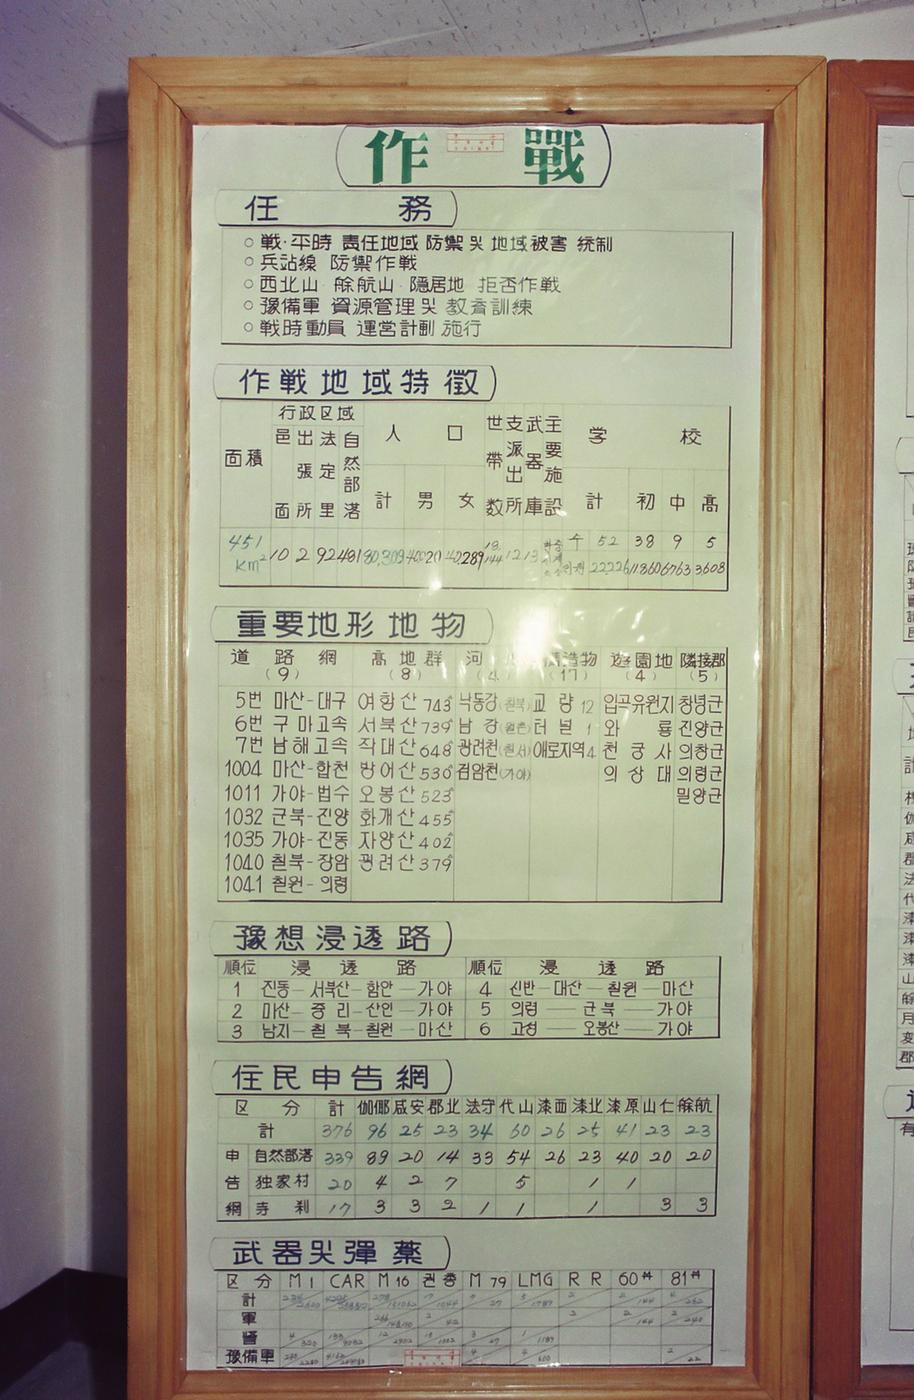 作 戰
任 務
○ 戦·平時 責任地域 防禦 및 地域被害 統制
○ 兵站線 防禦作戦
○ 西北山 · 艅航山 · 隠居地 拒否作戦
○ 豫備軍 資源管理 및 教育訓練
○ 戦時動員 運営計劃 施行
作戦地域特徴
面積 行政区域 人口 世帯数 支派出所 武器庫 主要施設 学校
邑面 出張所 法定里 自然部落 計 男 女 計 初 中 高
451 km² 10 2 92 481 80,309 40020 40,289 12 13 수 52 38 9 5
22226 11860 6763 3,608
重要地形地物
道路網 高地群 河 造物 遊園地 隣接郡
(9) (8) (17) (4) (5)
5번 마산-대구 여항산 743 낙동강(칠북) 교량 12 입곡유원지 창녕군
6번 구마고속 서북산 739 남강 터널 1 와룡 진양군
7번 남해고속 작대산 648 광려천(칠서) 애로지역 4 천궁사 의창군
1004 마산-합천 방어산 530 검암천(가야) 의상대 의령군
1011 가야-법수 오봉산 523 밀양군
1032 군북-진양 화개산 455
1035 가야-진동 자양산 402
1040 칠북-장암 광려산 379
1041 칠원-의령
豫想浸透路
順位 浸透路 順位 浸透路
1 진동-서북산-함안-가야 4 신반-대산-칠원-마산
2 마산-중리-산인-가야 5 의령-군북-가야
3 남지-칠북-칠원-마산 6 고성-오봉산-가야
住民申告網
区分 計 伽倻 咸安 郡北 法守 代山 漆西 漆北 漆原 山仁 艅航
計 376 96 25 23 34 60 26 25 41 23 23
申告網 自然部落 339 89 20 14 33 54 26 23 40 20 20
独家村 20 4 2 7 5 1 1
寺刹 17 3 3 2 1 1 1 3 3
武器및彈薬
区分 M1 CAR M16 권총 M79 LMG RR 60㎜ 81㎜
計
軍
警
豫備軍